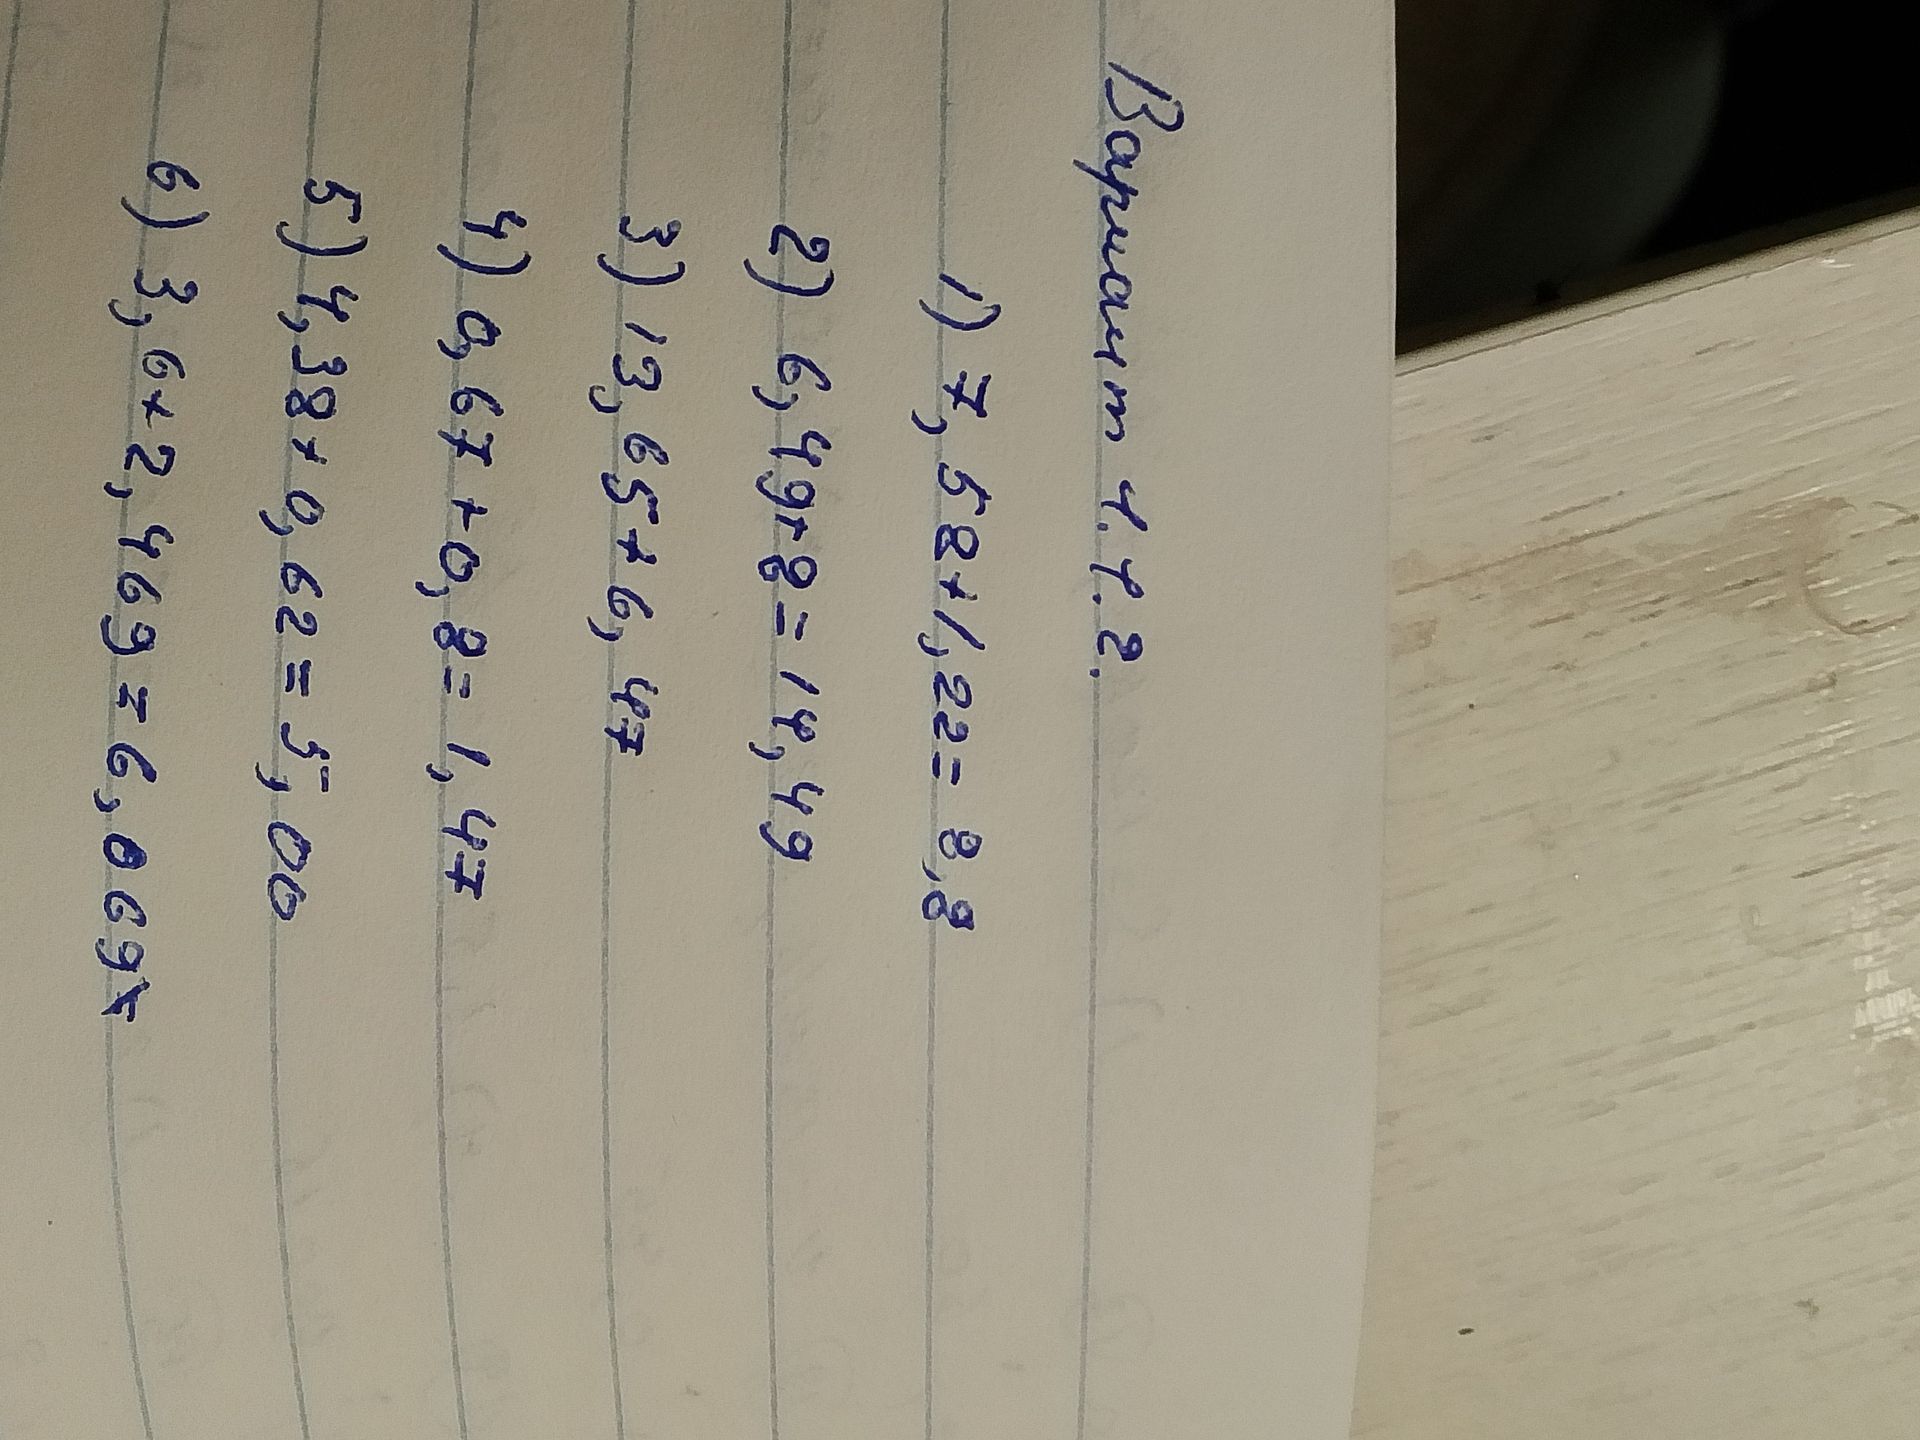 Вариант 4.4.2.
1) 7,58+1,22=8,8
2) 6,49+8=14,49
3) 13,65+6,47
4) 0,67+0,8=1,47
5) 4,38+0,62=5,00
6) 3,6+2,469=6,069